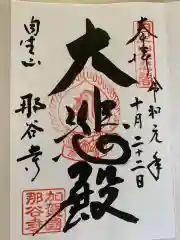 奉拝
令和元年
十月二十二日
大悲殿
自生山
那谷寺
加賀国
那谷寺